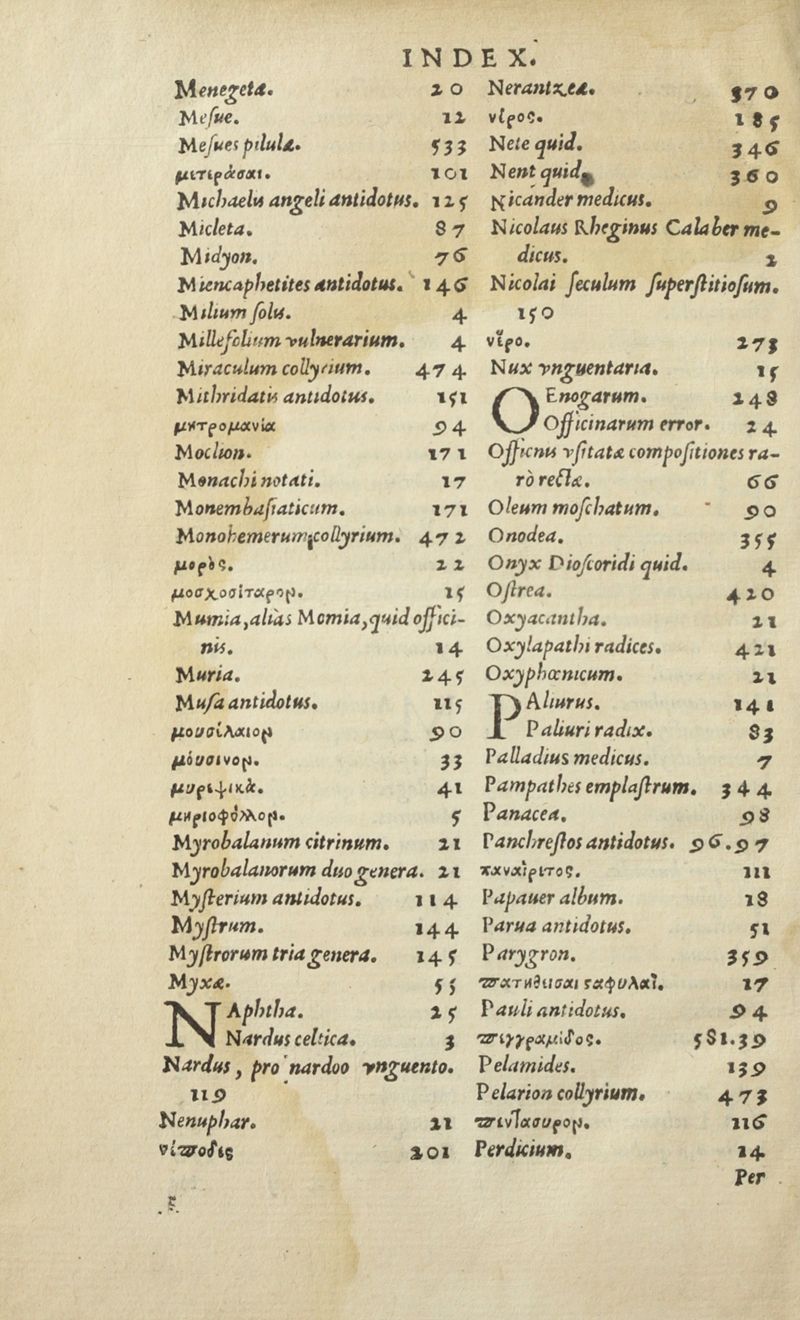 INDEX.
Menegeta. 20
Meſue. 12
Meſues pilulæ. 533
101
Michaelis angeli antidotus. 125
Micleta. 87
Midyon. 76
Miencaphetites antidotus. 146
Milium ſolis. 4
Millefolium vulnerarium. 4
Miraculum collyrium. 474
Mithridatis antidotus. 151
μητρομανία 94
Moclion. 171
Monachi notati. 17
Monembaſiaticum. 171
Monohemerum collyrium. 472
22
15
Mumia, aliàs Momia, quid offici-
nis. 14
Muria. 245
Muſa antidotus. 115
90
μόυσινον. 33
41
5
Myrobalanum citrinum. 21
Myrobalanorum duo genera. 21
Myſterium antidotus. 114
Myſtrum. 144
Myſtrorum tria genera. 145
Myxæ. 55
NAphtha. 25
Nardus celtica. 3
Nardus, pro nardoo vnguento.
119
Nenuphar. 21
201
Nerantzea. 370
185
Nete quid. 346
Nent quid 360
Nicander medicus. 9
Nicolaus Rheginus Calaber me-
dicus. 2
Nicolai ſeculum ſuperſtitioſum.
150
273
Nux vnguentaria. 15
OEnogarum. 248
Officinarum error. 24
Officinis vſitatæ compoſitiones ra-
rò rectæ. 66
Oleum moſchatum. 90
Onodea. 355
Onyx Dioſcoridi quid. 4
Oſtrea. 420
Oxyacantha. 21
Oxylapathi radices. 421
Oxyphœnicum. 21
PAliurus. 141
Paliuri radix. 83
Palladius medicus. 7
Pampathes emplaſtrum. 344
Panacea. 98
Panchreſtos antidotus. 96.97
111
Papauer album. 18
Parua antidotus. 51
Parygron. 359
17
Pauli antidotus. 94
581.39
Pelamides. 139
Pelarion collyrium. 473
116
Perdicium. 14
Per